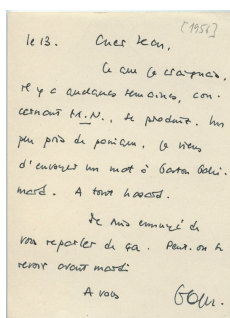 [1956]
le 13. Cher Jean,
Ce que je craignais,
il y a quelques semaines, con-
cernant M.N., se produit. Un
peu pris de panique, je viens
d'envoyer un mot à Gaston Galli-
mard. A tout hasard.
Je suis ennuyé de
vous reparler de ça. Peut-on se
revoir avant mardi
A vous